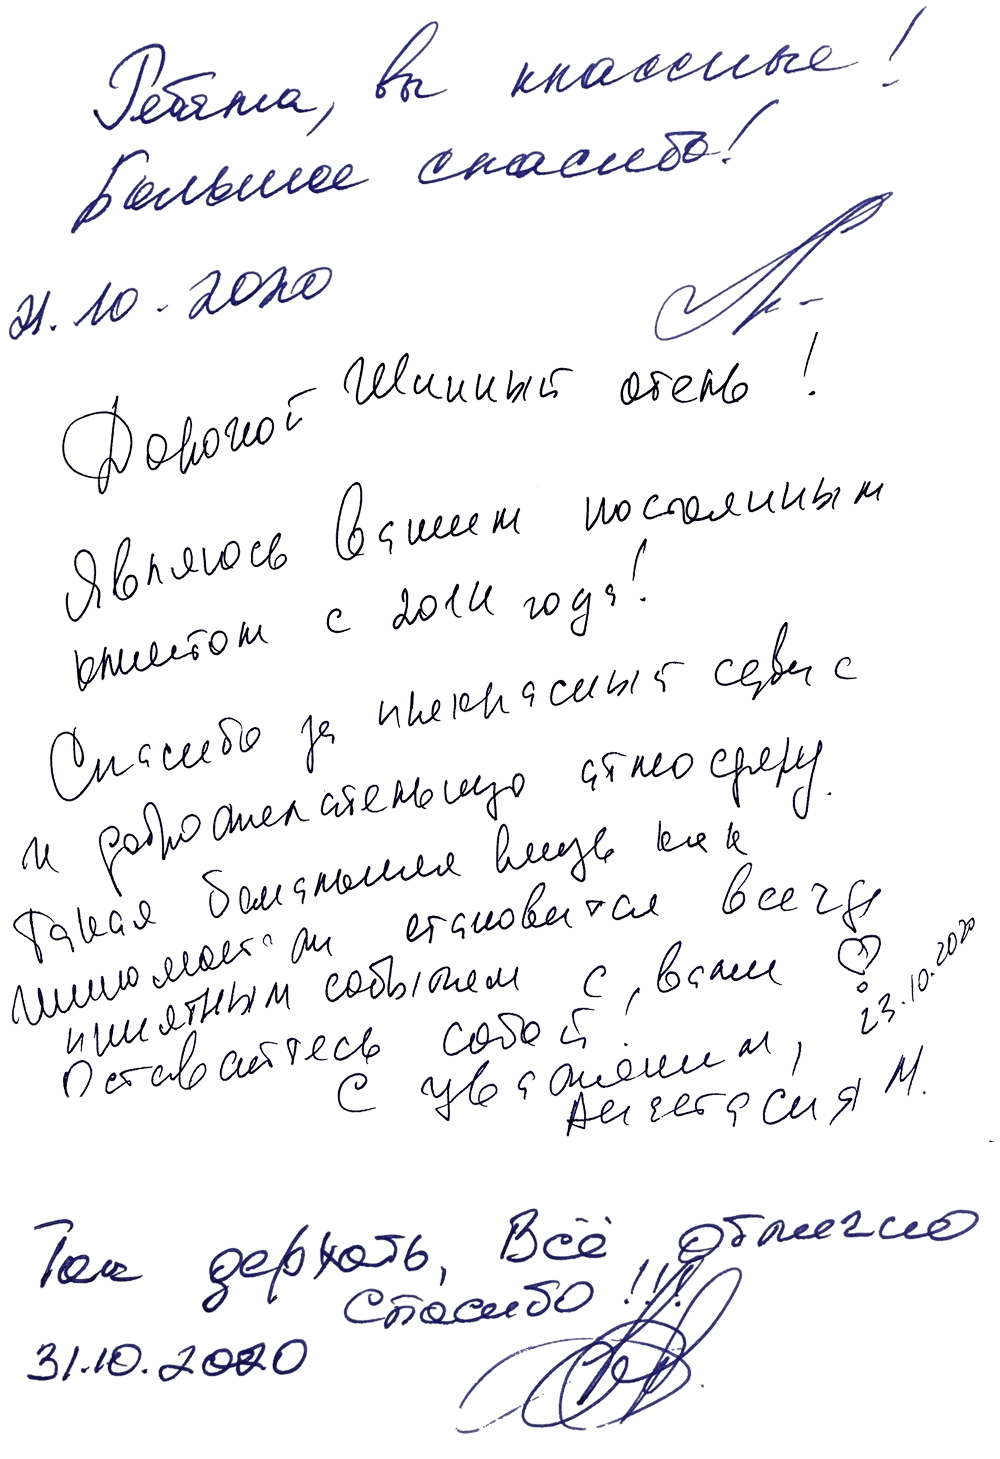 Ребята, вы классные!
Большое спасибо!
21.10.2020
Дорогой Шинный отель!
Являюсь Вашим постоянным
клиентом с 2014 года!
Спасибо за прекрасный сервис
и доброжелательную атмосферу.
Такая банальная вещь как
шиномонтаж становится всегда
приятным событием с вами
Оставайтесь собой!
23.10.2020
С уважением,
Анастасия М.
Так держать, Всё отлично
Спасибо!!!
31.10.2020